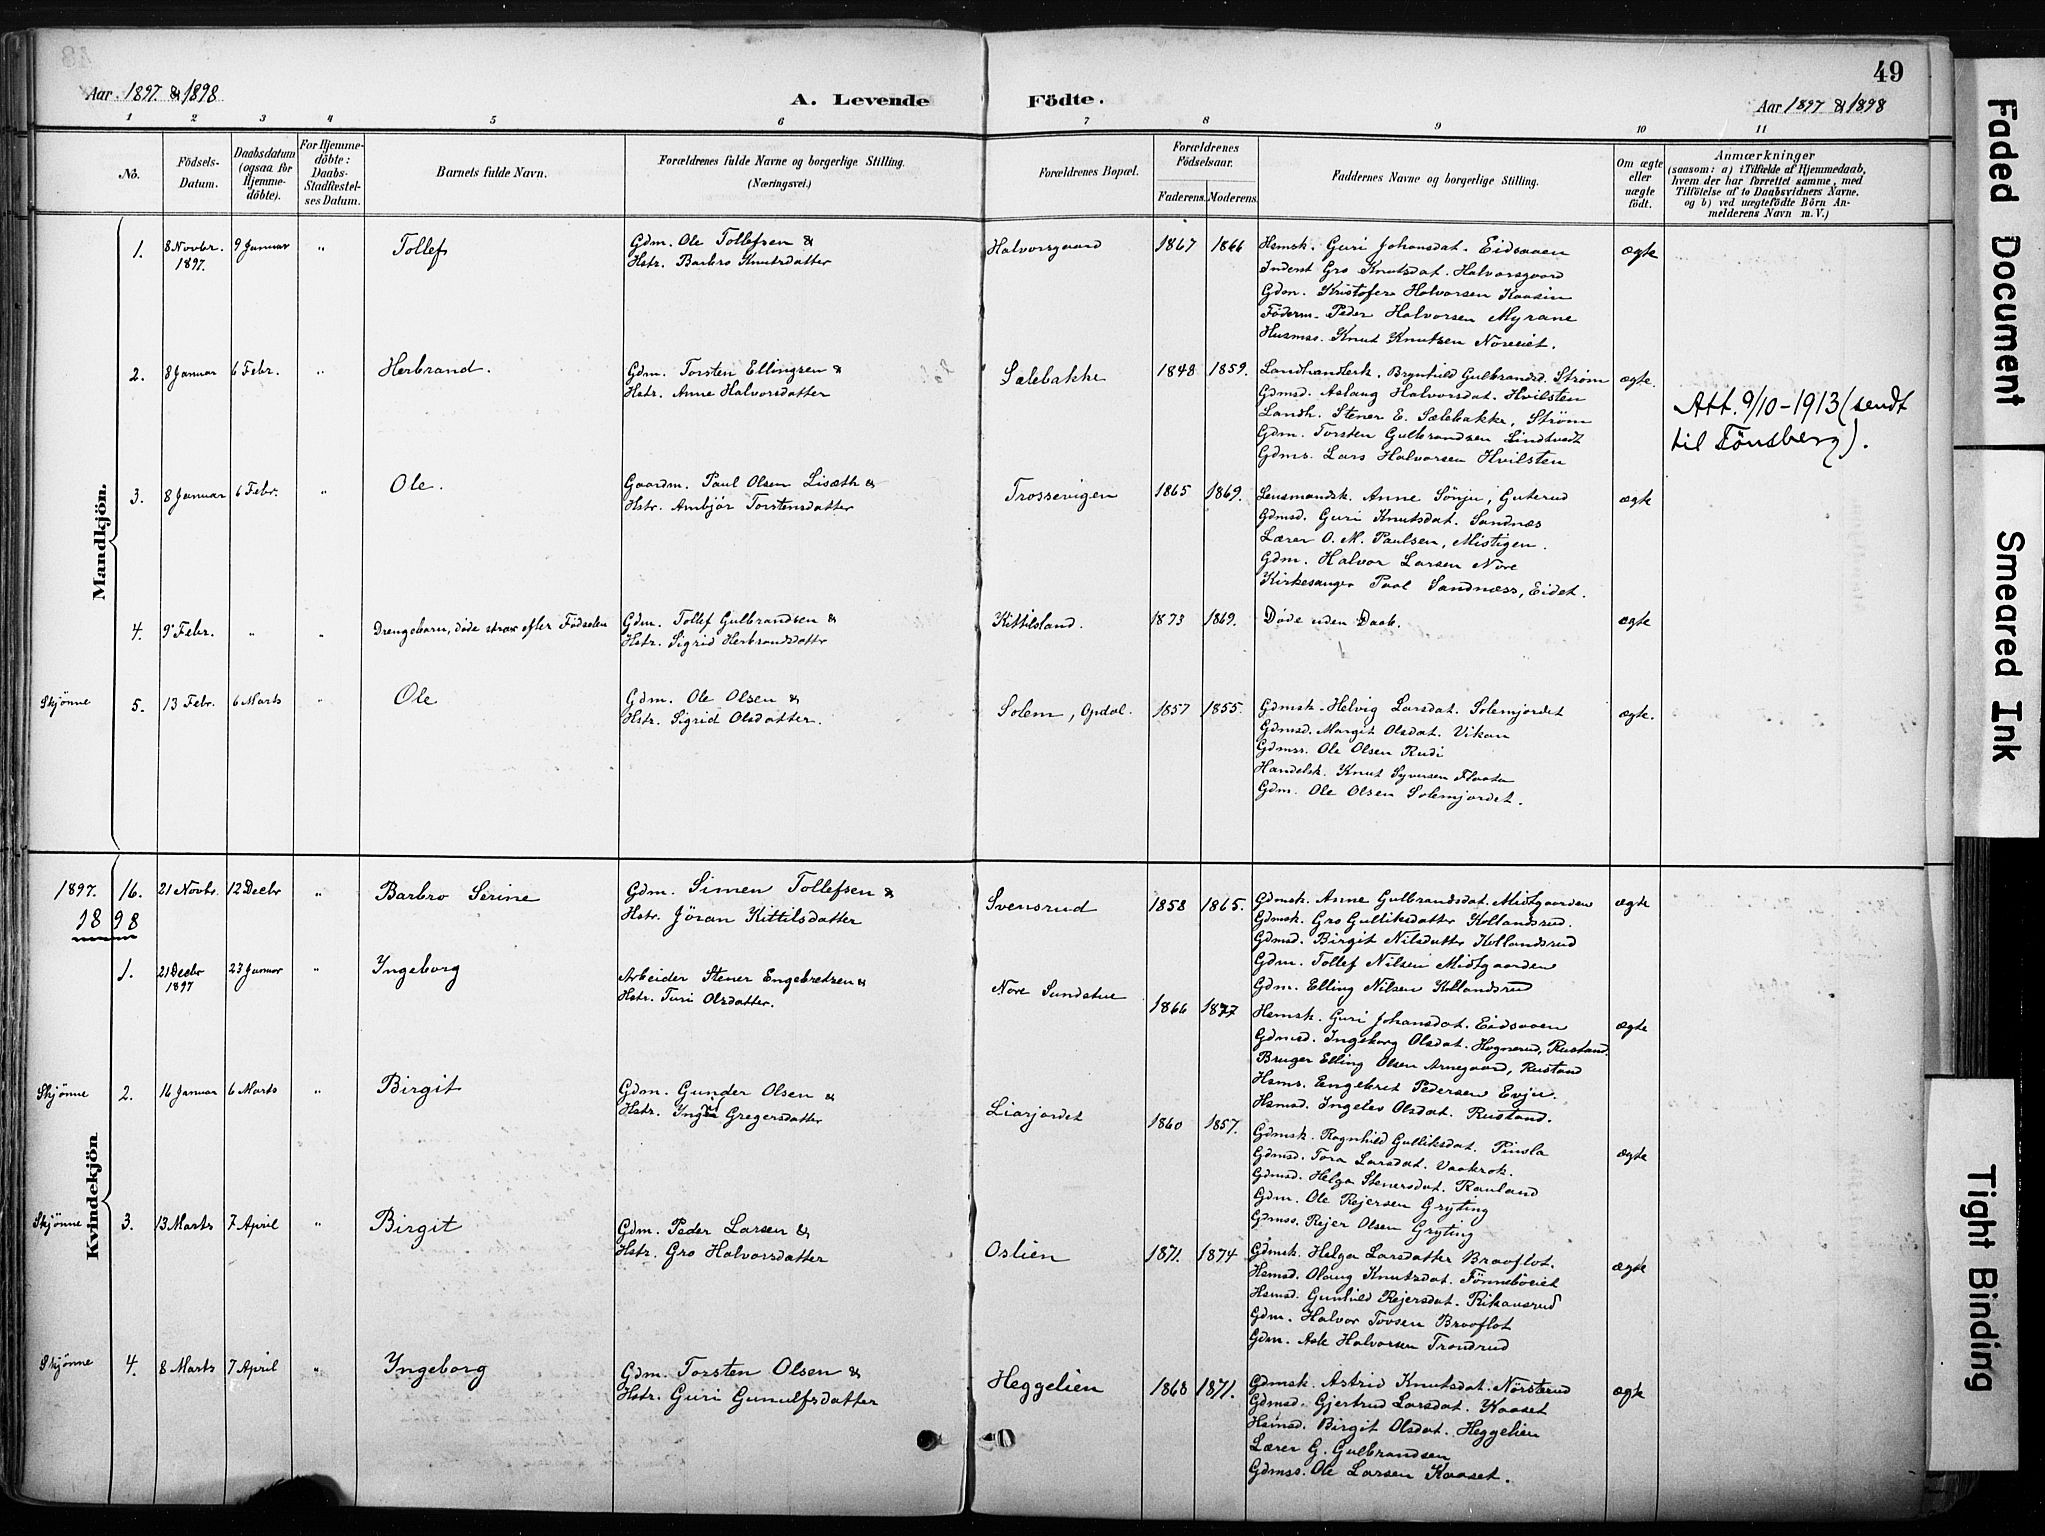 49
Aar 1897 & 1898
A. Levende Födte.
Aar 1897 & 1898
1 2 3 4 5 6 7 8 9 10 11
No.
Födsels-Datum.
Daabsdatum (ogsaa for Hjemme-döbte).
For Hjemme-döbte: Daabs-Stadfæstel-ses Datum.
Barnets fulde Navn.
Forældrenes fulde Navne og borgerlige Stilling.
(Næringsvei.)
Forældrenes Bopæl.
Forældrenes Födselsaar.
Faderens. Moderens.
Faddernes Navne og borgerlige Stilling.
Om ægte eller uægte födt.
Anmærkninger
(saasom: a) i Tilfælde af Hjemmedaab,
hvem der har forrettet samme, med
Tilföielse af to Daabsvidners Navne,
og b) ved uægtefödte Börn An-
melderens Navn m. V.)
Mandkjön.
1. 8 Novbr. 1897. 9 Januar " Tollef
Gdm. Ole Tollefsen &
Hstr. Barbro Knutsdatter
Halvorsgaard 1867 1866
Hsmsk. Guri Johansdat. Eidsaaen
Inderst Gro Knutsdat. Halvorsgaard
Gdm. Kristofer Halvorsen Kaasin
Föderm. Peder Halvorsen Myrane
Husmss. Knut Knutsen Noreeiet.
ægte
2. 8 Januar 6 Febr. " Herbrand.
Gdm. Torsten Ellingsen &
Hstr. Anne Halvorsdatter
Sælebakke 1848 1859.
Landhandlersk. Brynhild Gulbrandsd. Strøm
Gdmsd. Aslaug Halvorsdat. Hvilsten
Landh. Stener E. Sælebakke, Strøm
Gdm. Torsten Gulbrandsen Lindtvedt
Gdms. Lars Halvorsen Hvilsten
ægte.
Att. 9/10-1913 (sendt
til Tönsberg).
3. 8 Januar 6 Febr. " Ole.
Gaardm. Paul Olsen Liseth &
Hstr. Ambjör Torstensdatter
Trossevigen 1865 1869.
Lensmandsk. Anne Sönju, Guterud
Gdmsd. Guri Knutsdat. Sandnæs
Lærer O. M. Paulsen, Mistigen.
Gdm. Halvor Larsen Nore
Kirkesanger Paal Sandnæss, Eidet.
ægte
4. 9 Febr. " " Drengebarn, døde strax efter Fødselen
Gdm. Tollef Gulbrandsen &
Hstr. Sigrid Herbrandsdattr
Kittilsland. 1873 1869. Døde uden Daab. ægte
Skjønne 5. 13 Febr. 6 Marts " Ole
Gdm. Ole Olsen &
Hstr. Sigrid Olsdatter.
Solem, Opdal. 1857 1855.
Gdmsk. Helvig Larsdat. Solemjordet
Gdmsd. Margit Olsdat. Vikan
Gdmss. Ole Olsen Rudi
Handelsk. Knut Syversen Flaata
Gdm. Ole Olsen Solemjordet.
ægte.
Kvindekjön.
1897. 16. 21 Novbr. 12 Decbr " Barbro Serine
Gdm. Simen Tollefsen &
Hstr. Jöran Kittilsdatter
Svensrud 1858 1865.
Gdmsk. Anne Gulbrandsdat. Midtgaarden
Gdmsk. Gro Gulliksdatter Kollandsrud.
Gdmsd. Birgit Nilsdatter Kollandsrud
Gdm. Tollef Nilsen Midtgaarden
Gdm. Elling Nilsen Kollandsrud
ægte
1898
1. 21 Decbr 1897 23 Januar " Ingeborg
Arbeider Stener Engebretsen &
Hstr. Turi Olsdatter.
Nore Sundstue 1866 1877
Hsmsk. Guri Johansdat. Eidsaaen
Gdmsd. Ingeborg Olsdat. Hognerud, Rustand.
Bruger Elling Olsen Arnegaard, Rustand
Hsms. Engebret Pedersen Evju.
Hsmsd. Ingelev Olsdat. Rustand.
ægte
Skjønne 2. 16 Januar 6 Marts " Birgit
Gdm. Gunder Olsen &
Hstr. Gregersdatter
Liarjordet 1860 1857.
Gdmsk. Ragnhild Gulliksdat. Pinsla
Gdmsd. Tora Larsdat. Vaakrok.
Gdmsd. Helga Stenersdat. Rauland
Gdm. Ole Rejersen Gryting
Gdmss. Rejer Olsen Gryting
ægte
Skjønne 3. 13 Marts 7 April " Birgit
Gdm. Peder Larsen &
Hstr. Gro Halvorsdatter
Oslien 1871. 1874
Gdmsk. Helga Larsdatter Braaflot.
Hsmsd. Olaug Knutsdat. Tönnsböeiet
Hsmsd. Gunhild Rejersdat. Rikansrud
Gdm. Halvor Tovsen Braaflot
Gdm. Asle Halvorsen Trondrud
ægte
Skjønne 4. 8 Marts 7 April " Ingeborg
Gdm. Torsten Olsen &
Hstr. Guri Gunulfsdatter
Heggelien 1868 1871.
Gdmsk. Astrid Knutsdat. Nörsterud
Gdmsd. Gjertrud Larsdat. Kaaset
Hsmsd. Birgit Olsdat. Heggelien
Lærer G. Gulbrandsen
Gdmss. Ole Larsen Kaaset.
ægte
Faded Document
Smeared Ink
Tight Binding